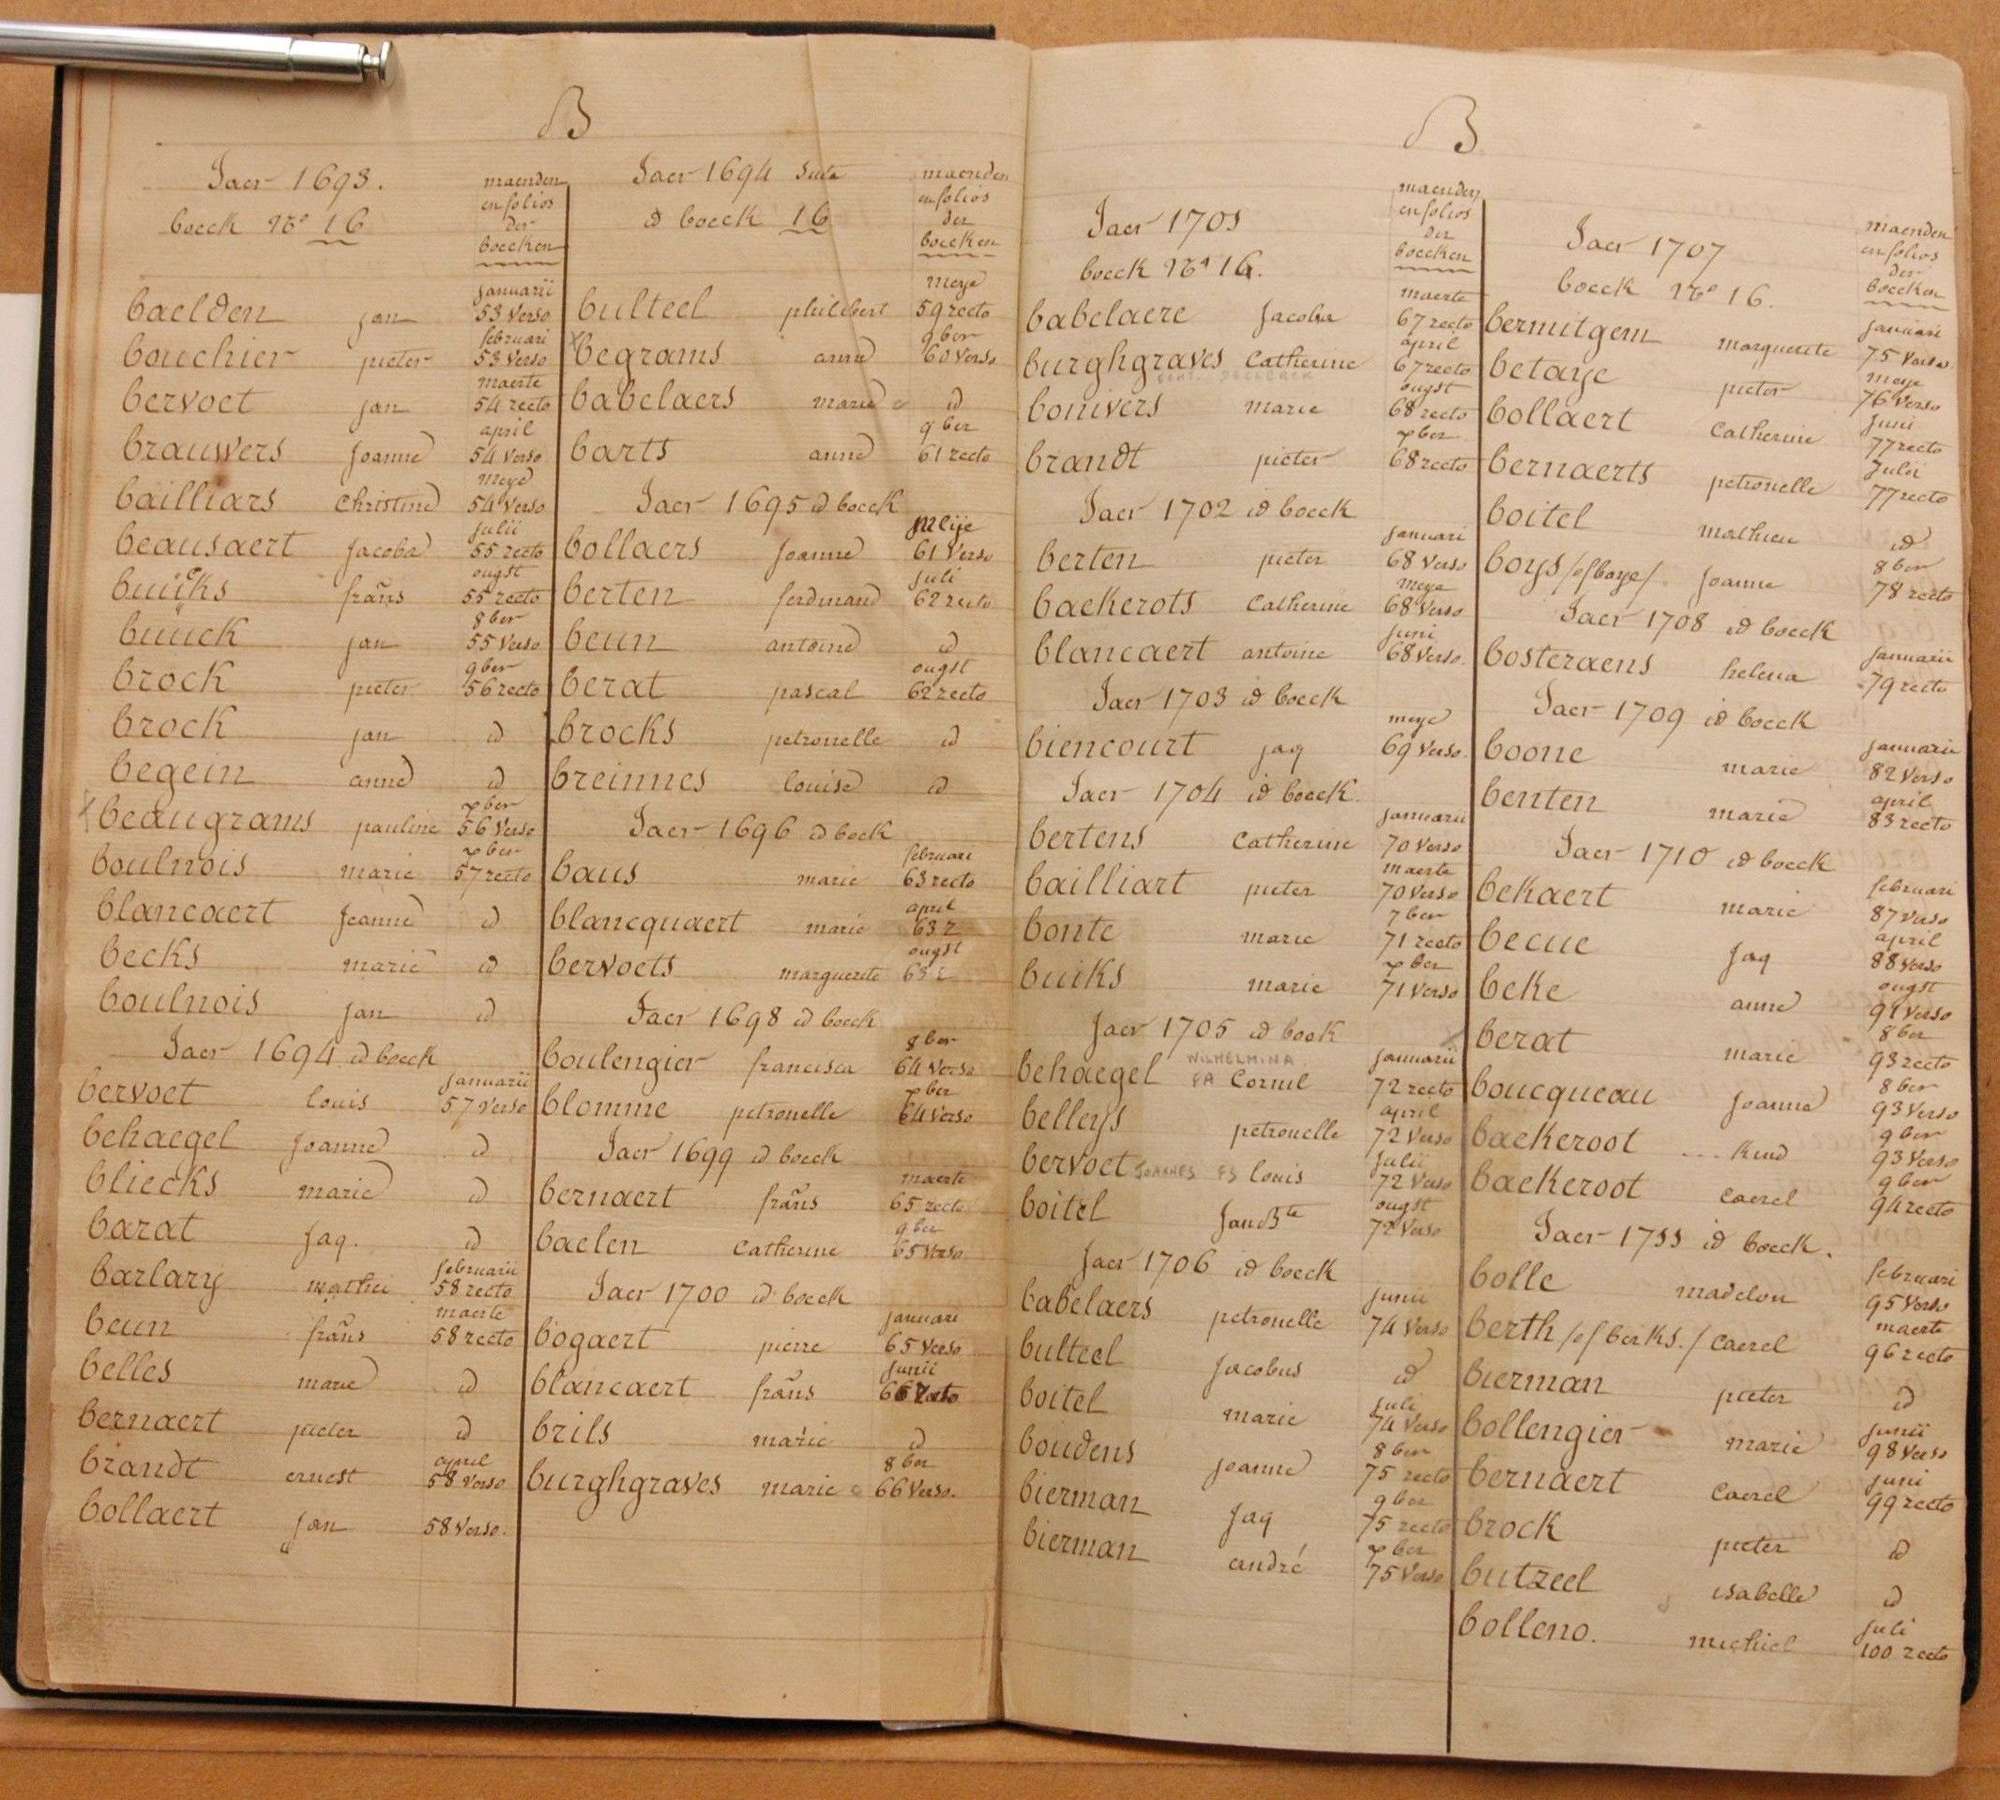 B
Jaer 1693.
boeck No 16
maenden
en folios
der
boecken
januarii
baelden jan 53 verso
februari
bouchier pieter 53 verso
maerte
bervoet jan 54 recto
april
brauwers joanne 54 verso
meye
bailliars christine 54 verso
julii
beausaert jacoba 55 recto
ougst
buücks frans 55 recto
8ber
buück jan 55 verso
9ber
brock pieter 56 recto
brock jan id
begein anne id
xber
beaugrams pauline 56 verso
xber
boulnois marie 57 recto
blancaert jeanne id
becks marie id
boulnois jan id
Jaer 1694 id boeck
januarii
bervoet louis 57 verso
behaegel joanne id
bliecks marie id
barat jaq. id
februarii
barlary mathie 58 recto
maerte
beun frans 58 recto
belles marie id
bernaert pieter id
april
brandt ernest 58 verso
bollaert jan 58 verso.
Jaer 1694 suite
id boeck 16
maenden
en folios
der
boecken
meye
bulteel philibert 59 recto
9ber
begrams anne 60 verso
babelaers marie id
9ber
barts anne 61 recto
Jaer 1695 id boeck
meije
bollaers joanne 61 verso
juli
berten ferdinand 62 recto
beun antoine id
ougst
berat pascal 62 recto
brocks petronelle id
breinnes louise id
Jaer 1696 id boek
februari
baus marie 63 recto
april
blancquaert marie 63 r
ougst
bervoets marguerite 63 r
Jaer 1698 id boeck
8ber
boulengier francisca 64 verso
xber
blomme petronelle 64 verso
Jaer 1699 id boeck
maerte
bernaert frans 65 recto
9ber
baelen catherine 65 verso
Jaer 1700 id boeck
januari
bogaert pierre 65 verso
junii
blancaert frans 66 recto
brils marie id
8ber
burghgraves marie 66 verso.
B
Jaer 1701
boeck No 16.
maenden
en folios
der
boecken
maerte
babelaere jacoba 67 recto
april
burghgraves catherine 67 recto
ougst
bonivers marie 68 recto
xber
brandt pieter 68 recto
Jaer 1702 id boeck
januari
berten pieter 68 verso
meye
baekerots catherine 68 verso
juni
blancaert antoine 68 verso.
Jaer 1703 id boeck
meye
biencourt jaq 69 verso.
Jaer 1704 id boeck.
januarii
bertens catherine 70 verso
maerte
bailliart pieter 70 verso
7ber
bonte marie 71 recto
xber
buiks marie 71 verso
Jaer 1705 id boek
WILHELMINA januarii
behaegel FA Cornil 72 recto
april
belleys petronelle 72 verso
julii
bervoet JOANNES FS louis 72 verso
ougst
boitel jan Bte 72 verso
Jaer 1706 id boeck
junii
babelaers petronelle 74 verso
bulteel jacobus id
juli
boitel marie 74 verso
8ber
boudens joanne 75 recto
9ber
bierman jaq 75 recto
xber
bierman andré 75 verso
Jaer 1707
boeck No 16.
maenden
en folios
der
boecken
januari
bermitgem marguerite 75 verso
meye
betaye pieter 76 verso
juni
bollaert catherine 77 recto
juli
bernaerts petronelle 77 recto
boitel mathieu id
8ber
boys /of boye/ joanne 78 recto
Jaer 1708 id boeck
januarii
bosteraens helena 79 recto
Jaer 1709 id boeck
januarii
boone marie 82 verso
april
benten marie 83 recto
Jaer 1710 id boeck
februari
bekaert marie 87 verso
april
becue jaq 88 verso
ougst
beke anne 91 verso
8ber
berat marie 93 recto
8ber
boucqueau joanne 93 verso
9ber
baekeroot ... kind 93 verso
9ber
baekeroot caerel 94 recto
Jaer 1711 id boeck.
februari
bolle madelon 95 verso
maerte
berth /of berks./ caerel 96 recto
bierman pieter id
junii
bollengier marie 98 verso
juni
bernaert caerel 99 recto
brock pieter id
butzeel isabelle id
juli
bolleno. michiel 100 recto